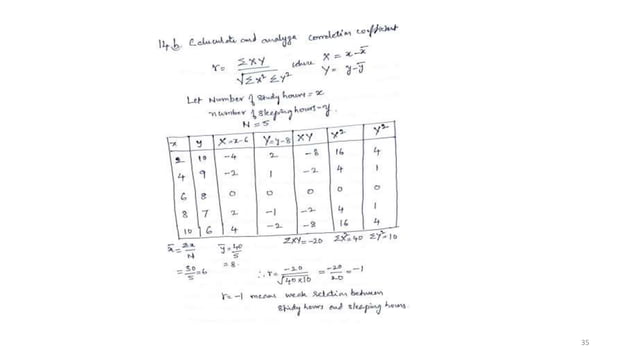 14.b Calculate and analyze correlation coefficient
r = ΣXY / √Σx² Σy² where X = x-x̄
Y = y-ȳ
Let Number of study hours = x
number of sleeping hours - y.
N = 5
x y X=x-6 Y=y-8 XY X² Y²
2 10 -4 2 -8 16 4
4 9 -2 1 -2 4 1
6 8 0 0 0 0 0
8 7 2 -1 -2 4 1
10 6 4 -2 -8 16 4
ΣXY=-20 ΣX²=40 ΣY²=10
x̄ = Σx/N ȳ = 40/5
= 30/5 = 6 = 8.
∴ r = -20/√40×10 = -20/20 = -1
r = -1 means weak relation between
study hours and sleeping hours.
35